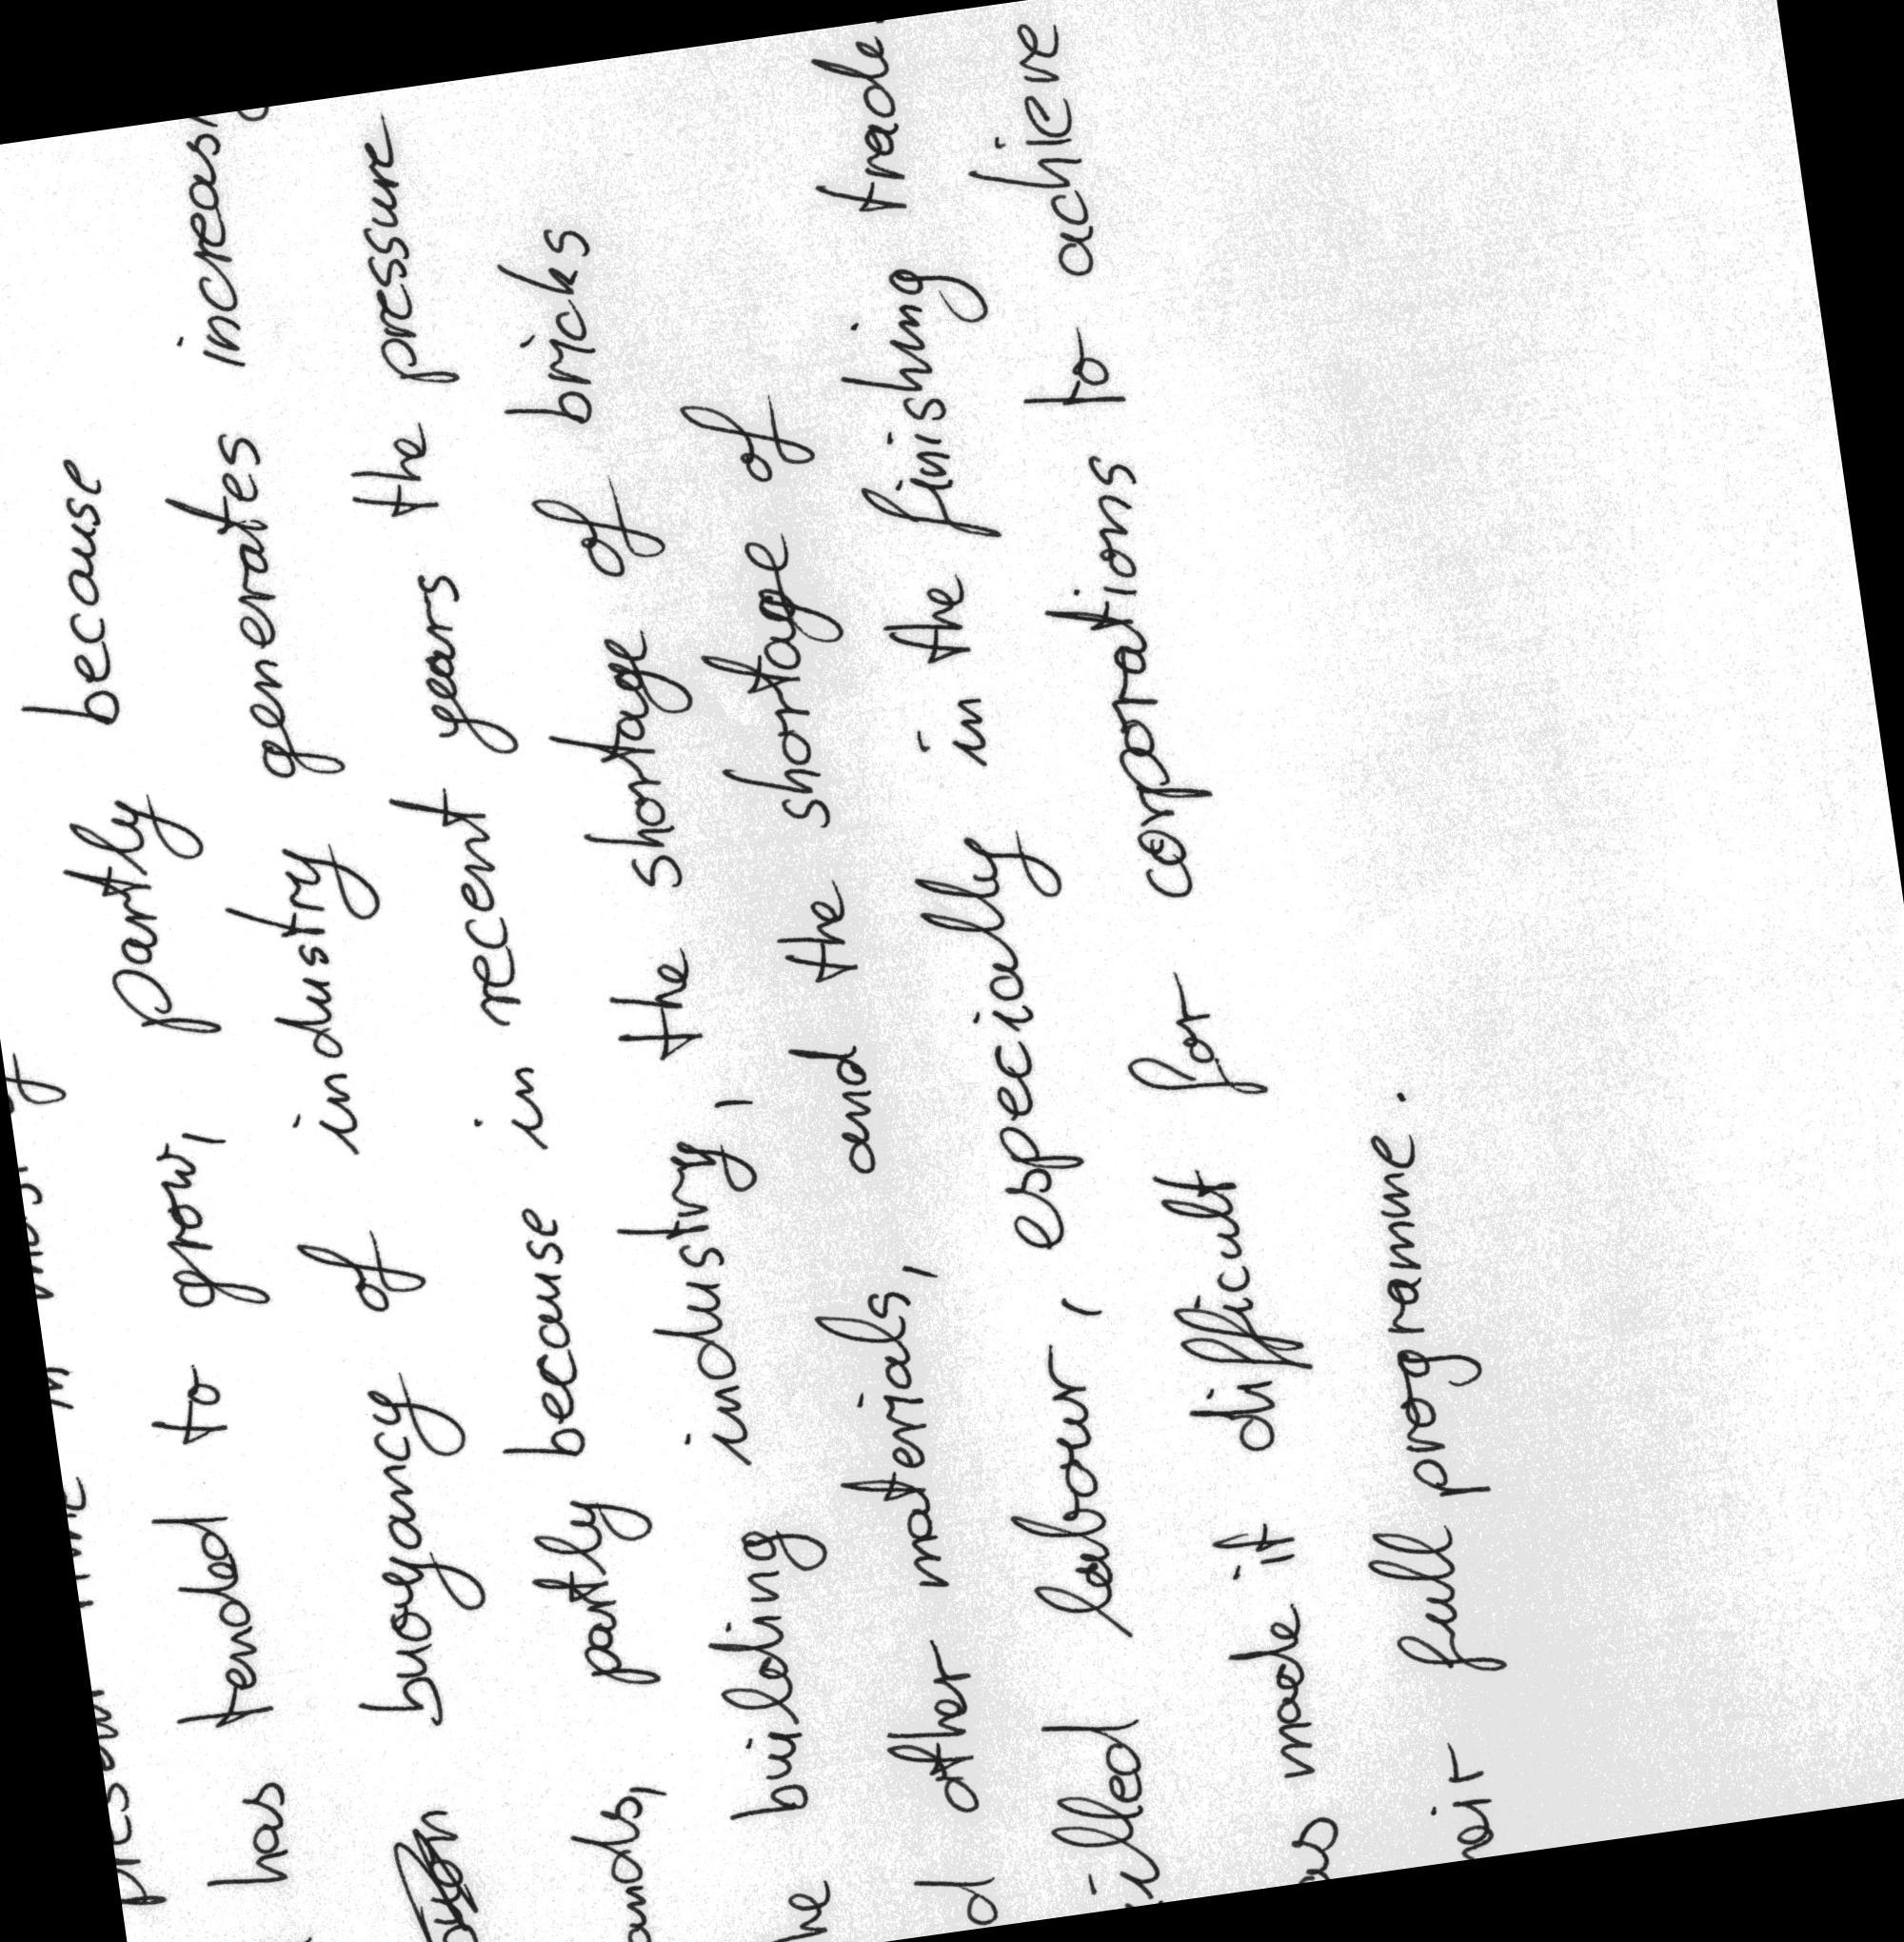 has tended to grow, partly because
buoyancy of industry generates
partly because in recent years the pressure
building industry, the shortage of bricks
other materials, and the shortage of
labour, especially in the finishing trade
made it difficult for corporations to achieve
full programme.